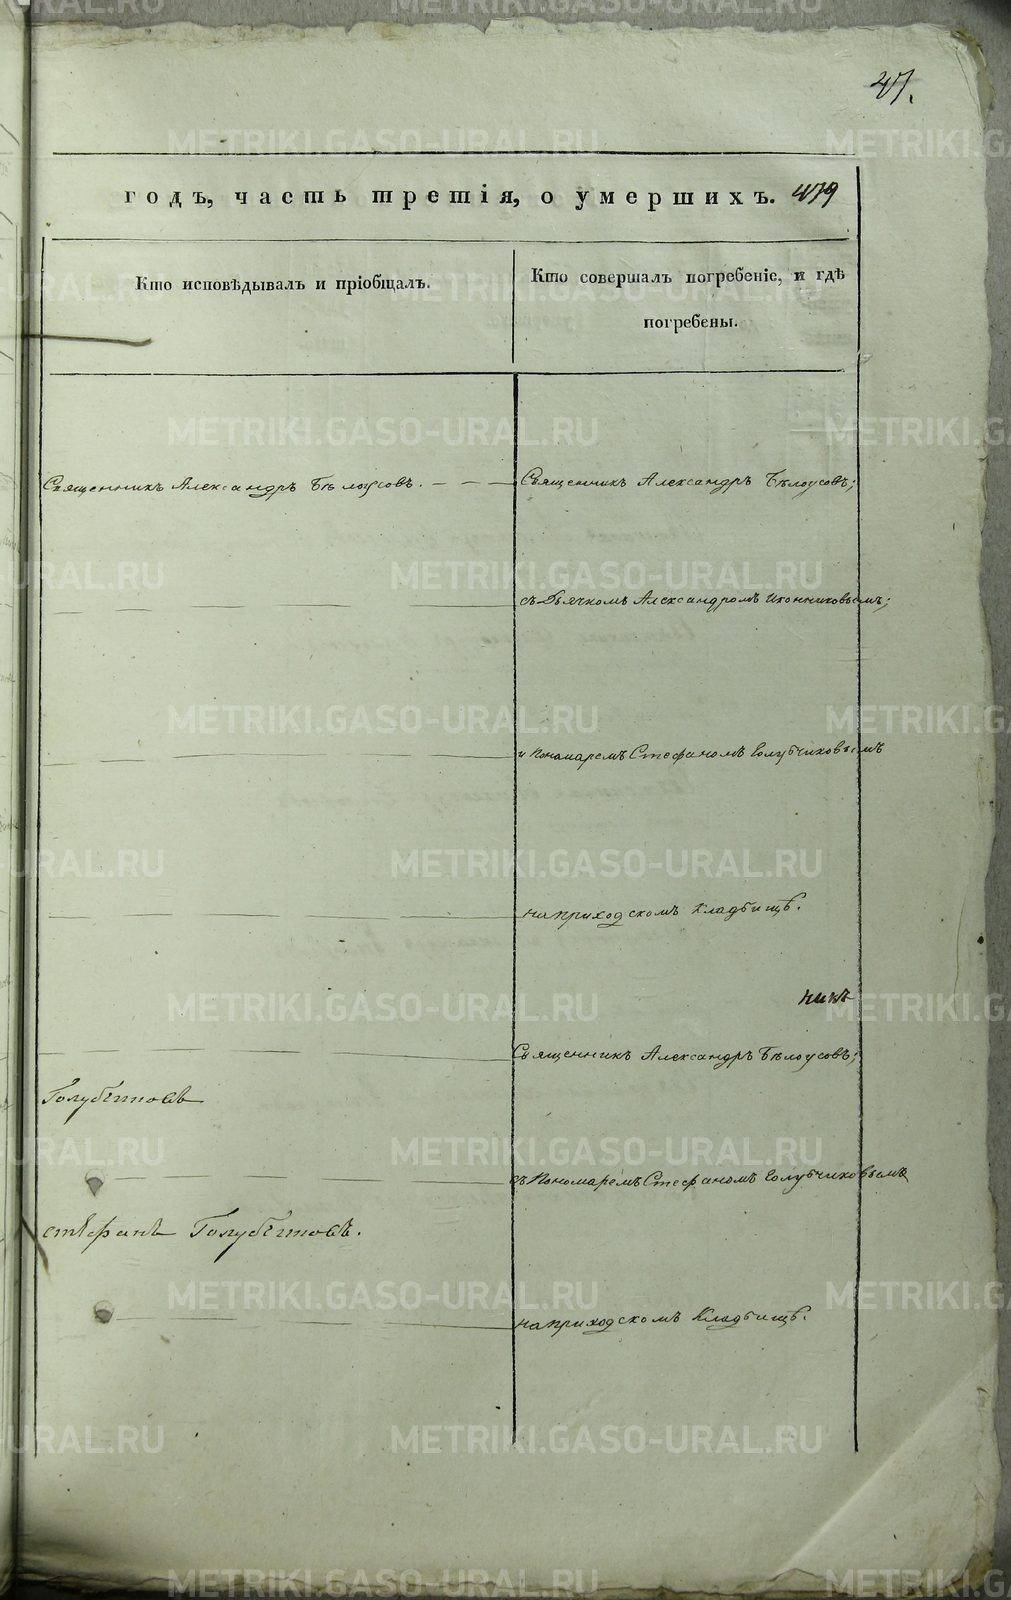 47.
годъ, часть третія, о умершихъ. 479
Кто исповѣдывалъ и пріобщалъ.
Кто совершалъ погребеніе, и гдѣ
погребены.
Священникъ Александръ Бѣлоусовъ.
Священникъ Александръ Бѣлоусовъ;
съ Дьячкомъ Александромъ Иконниковымъ;
и Пономаремъ Стефаномъ Голубчиковымъ
на приходскомъ Кладбищѣ.
никъ
Священникъ Александръ Бѣлоусовъ;
съ Пономаремъ Стефаномъ Голубчиковымъ
Стефанъ
на приходскомъ Кладбищѣ.
METRIKI.GASO-URAL.RU